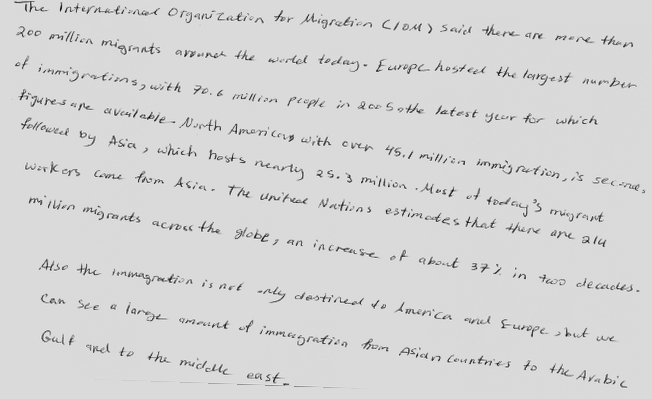 The International Organization for Migration (IOM) said there are more than
200 million migrants around the world today. Europe hosted the largest number
of immigrations, with 70.6 million people in 2005, the latest year for which
figures are available. North America, with over 45.1 million immigration, is second,
followed by Asia, which hosts nearly 25.3 million. Most of today's migrant
workers come from Asia. The United Nations estimates that there are 214
million migrants across the globe, an increase of about 37% in two decades.
Also the immagration is not only destined to America and Europe, but we
can see a large amount of immaigration from Asian countries to the Arabic
Gulf and to the middle east.